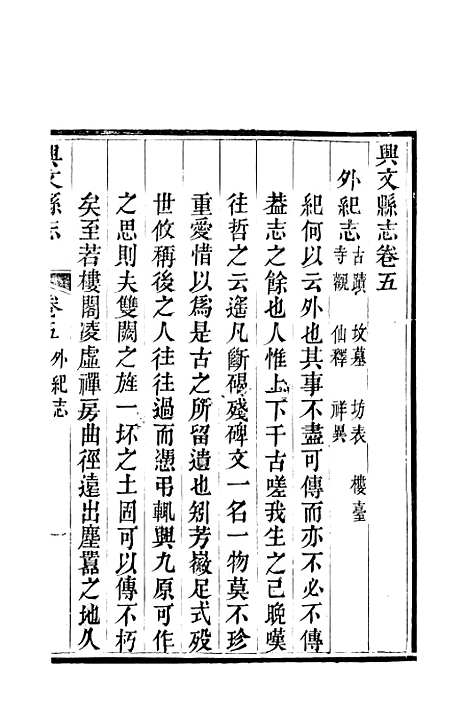 興文縣志卷五
外紀志 古蹟 坟墓 坊表 樓臺
寺觀 仙釋 祥異
紀何以云外也其事不盡可傳而亦不必不傳
葢志之餘也人惟上下千古嗟我生之已晚嘆
往哲之云遙凡斷碣殘碑文一名一物莫不珍
重愛惜以為是古之所留遺也矧芳徽足式殁
世攸稱後之人往往過而憑弔輒與九原可作
之思則夫雙闕之旌一坏之土固可以傳不朽
矣至若樓閣凌虛禪房曲徑遠出塵囂之地久
興文縣志
卷五 外紀志 一